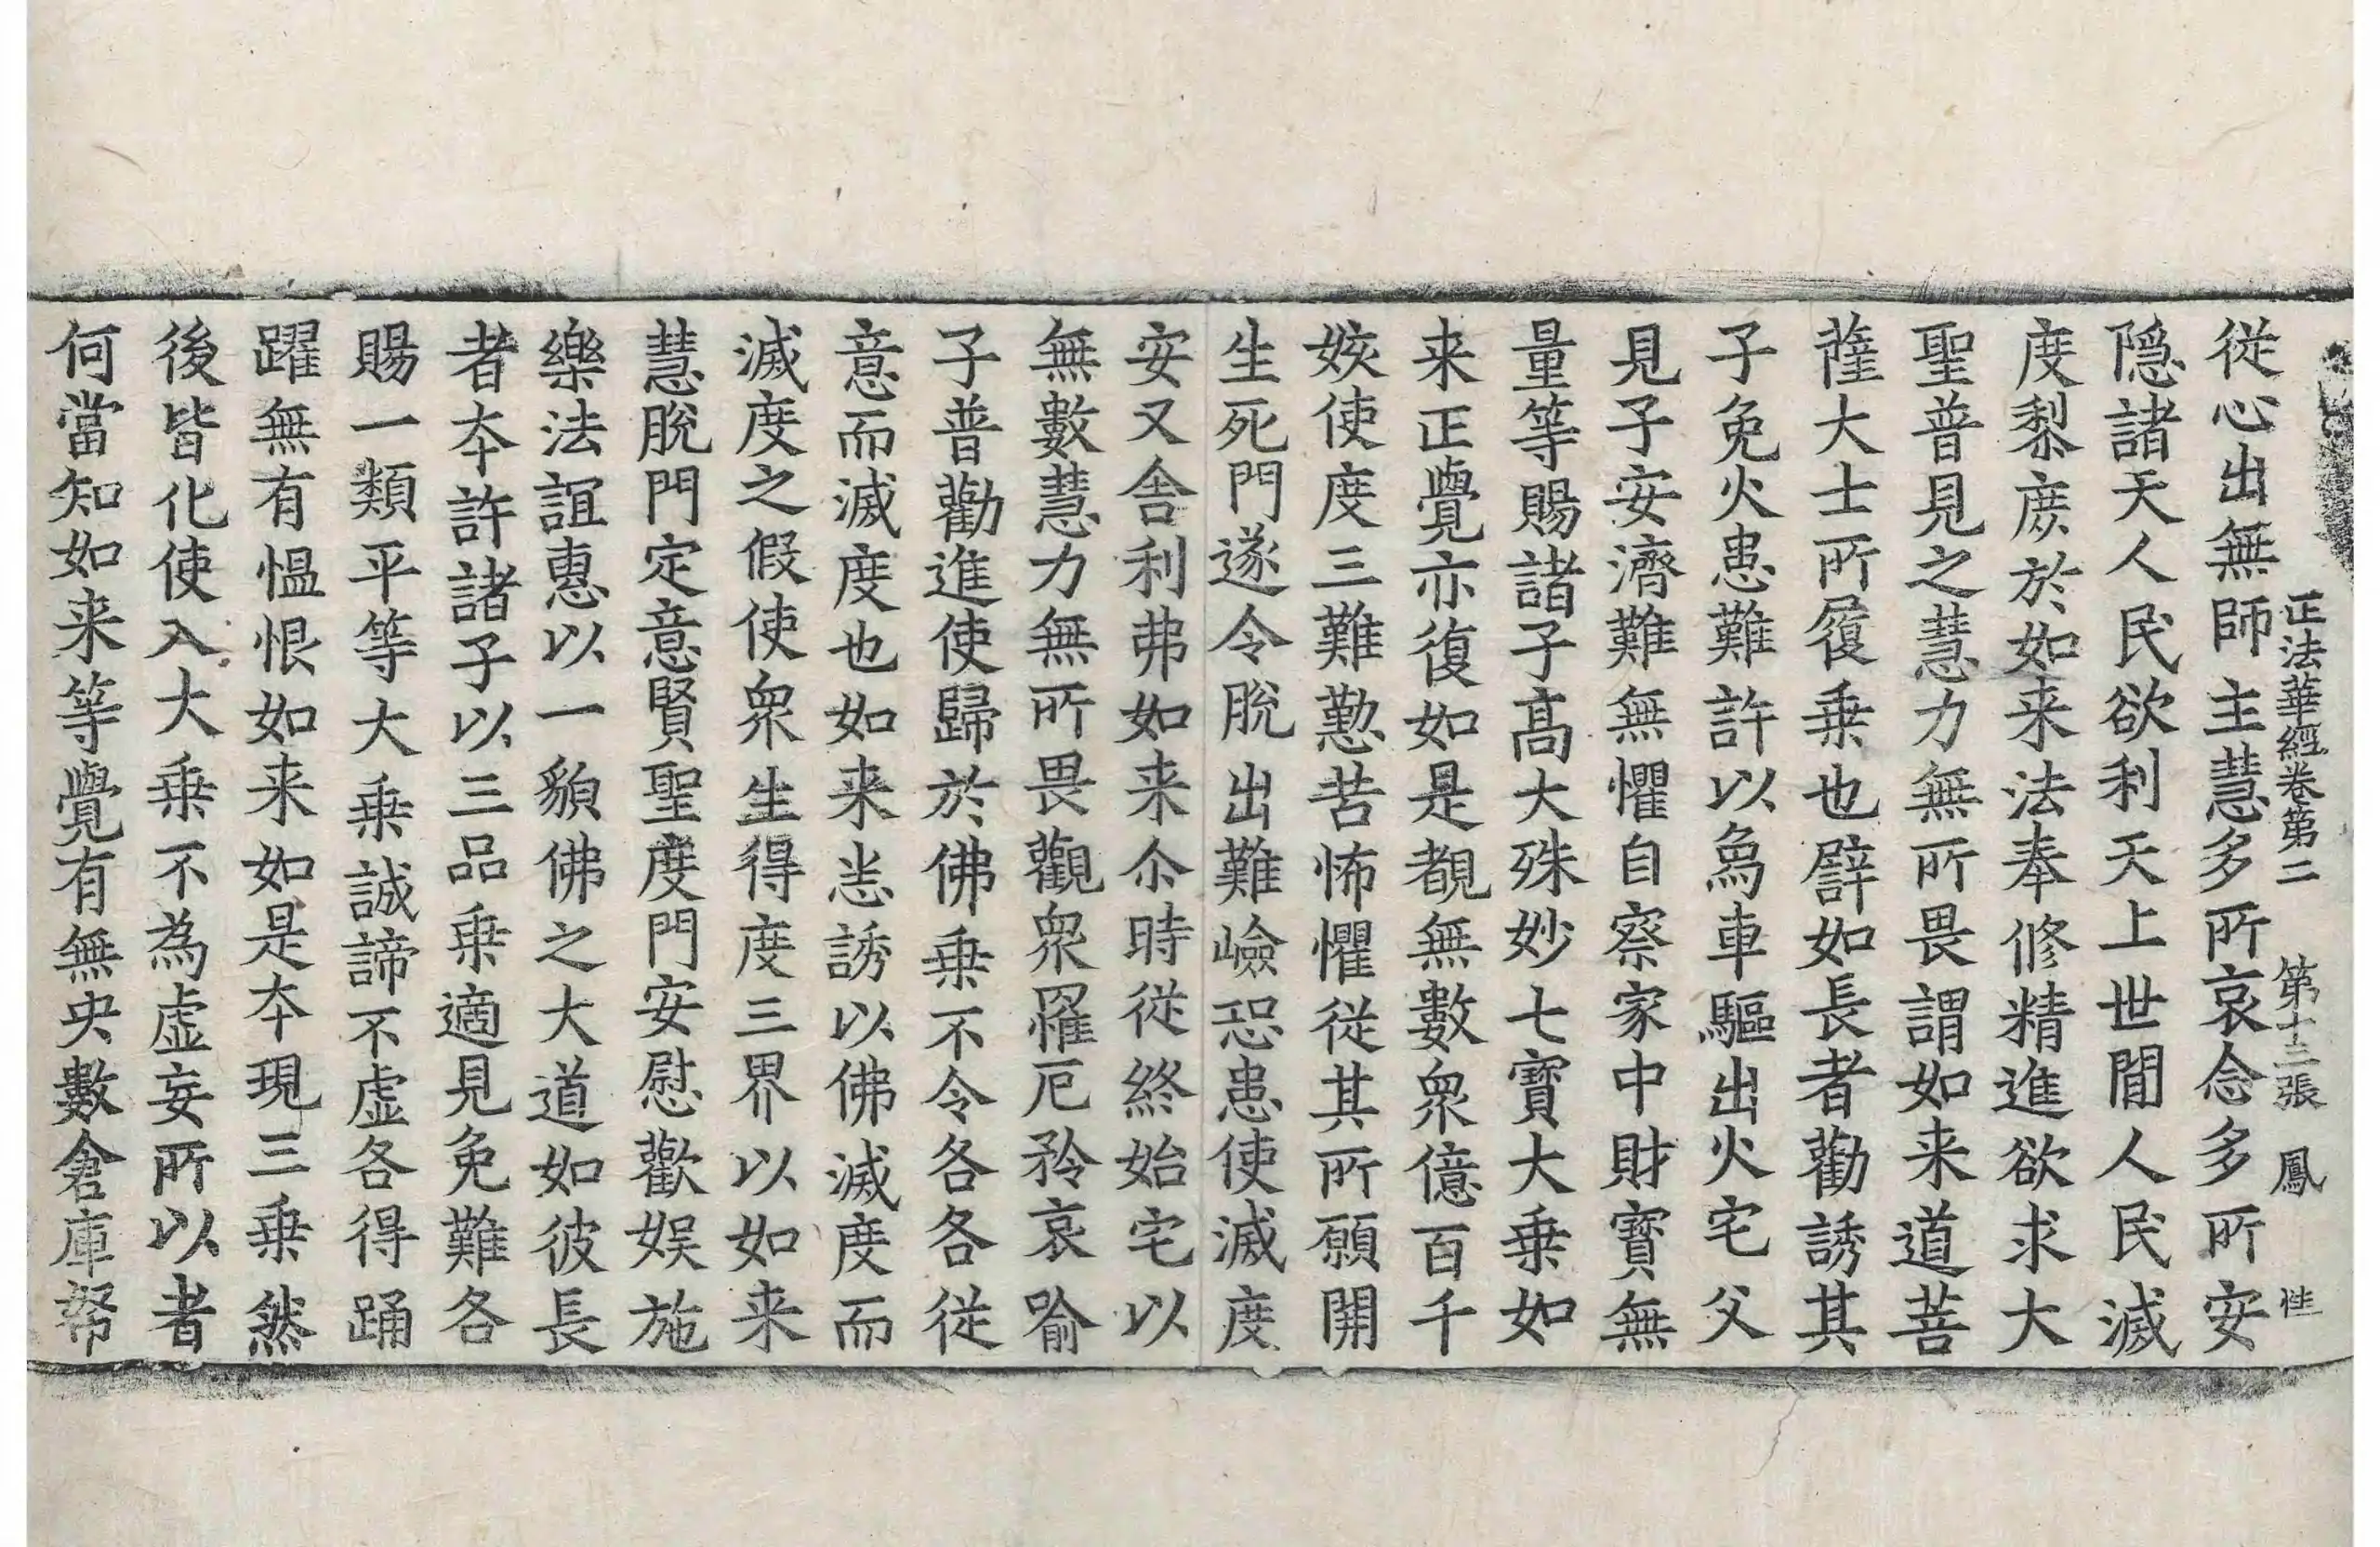 正法華經卷第二　第十三張　鳳　性
從心出無師主慧多所哀念多所安
隱諸天人民欲利天上世間人民滅
度黎庶於如来法奉修精進欲求大
聖普見之慧力無所畏謂如来道菩
薩大士所履乗也譬如長者勸誘其
子免火患難許以為車驅出火宅父
見子安濟難無懼自察家中財寳無
量等賜諸子髙大殊妙七寳大乗如
来正覺亦復如是覩無數衆億百千
姟使度三難懃苦怖懼從其所願開
生死門遂令脫出難嶮恐患使滅度
安又舎利弗如来尒時從終始宅以
無數慧力無所畏觀衆罹厄矜哀喻
子普勸進使歸於佛乗不令各各從
意而滅度也如来恙誘以佛滅度而
滅度之假使衆生得度三界以如来
慧脫門定意賢聖度門安慰歡娱施
樂法誼惠以一貌佛之大道如彼長
者夲許諸子以三品乗適見免難各
賜一類平等大乗誠諦不虛各得踊
躍無有愠恨如来如是夲現三乗然
後皆化使入大乗不為虛妄所以者
何當知如来等覺有無央數倉庫帑